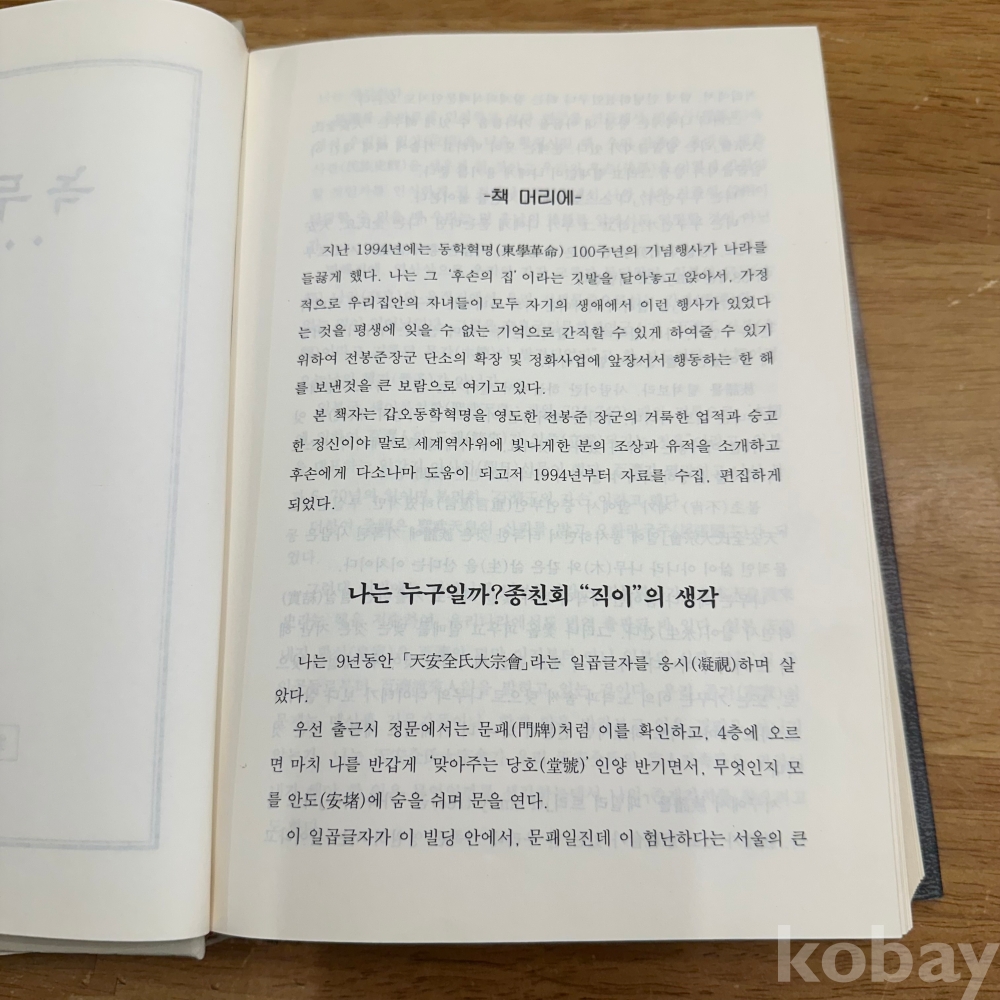 -책 머리에-
지난 1994년에는 동학혁명(東學革命) 100주년의 기념행사가 나라를
들끓게 했다. 나는 그 ‘후손의 집’이라는 깃발을 달아놓고 앉아서, 가정
적으로 우리집안의 자녀들이 모두 자기의 생애에서 이런 행사가 있었다
는 것을 평생에 잊을 수 없는 기억으로 간직할 수 있게 하여줄 수 있기
위하여 전봉준장군 단소의 확장 및 정화사업에 앞장서서 행동하는 한 해
를 보낸것을 큰 보람으로 여기고 있다.
본 책자는 갑오동학혁명을 영도한 전봉준 장군의 거룩한 업적과 숭고
한 정신이야 말로 세계역사위에 빛나게한 분의 조상과 유적을 소개하고
후손에게 다소나마 도움이 되고지 1994년부터 자료를 수집, 편집하게
되었다.
나는 누구일까?종친회 “직이”의 생각
나는 9년동안 「天安全氏大宗會」라는 일곱글자를 응시(凝視)하며 살
았다.
우선 출근시 정문에서는 문패(門牌)처럼 이를 확인하고, 4층에 오르
면 마치 나를 반갑게 ‘맞아주는 당호(堂號)’인양 반기면서, 무엇인지 모
를 안도(安堵)에 숨을 쉬며 문을 연다.
이 일곱글자가 이 빌딩 안에서, 문패일진데 이 험난하다는 서울의 큰
kobay